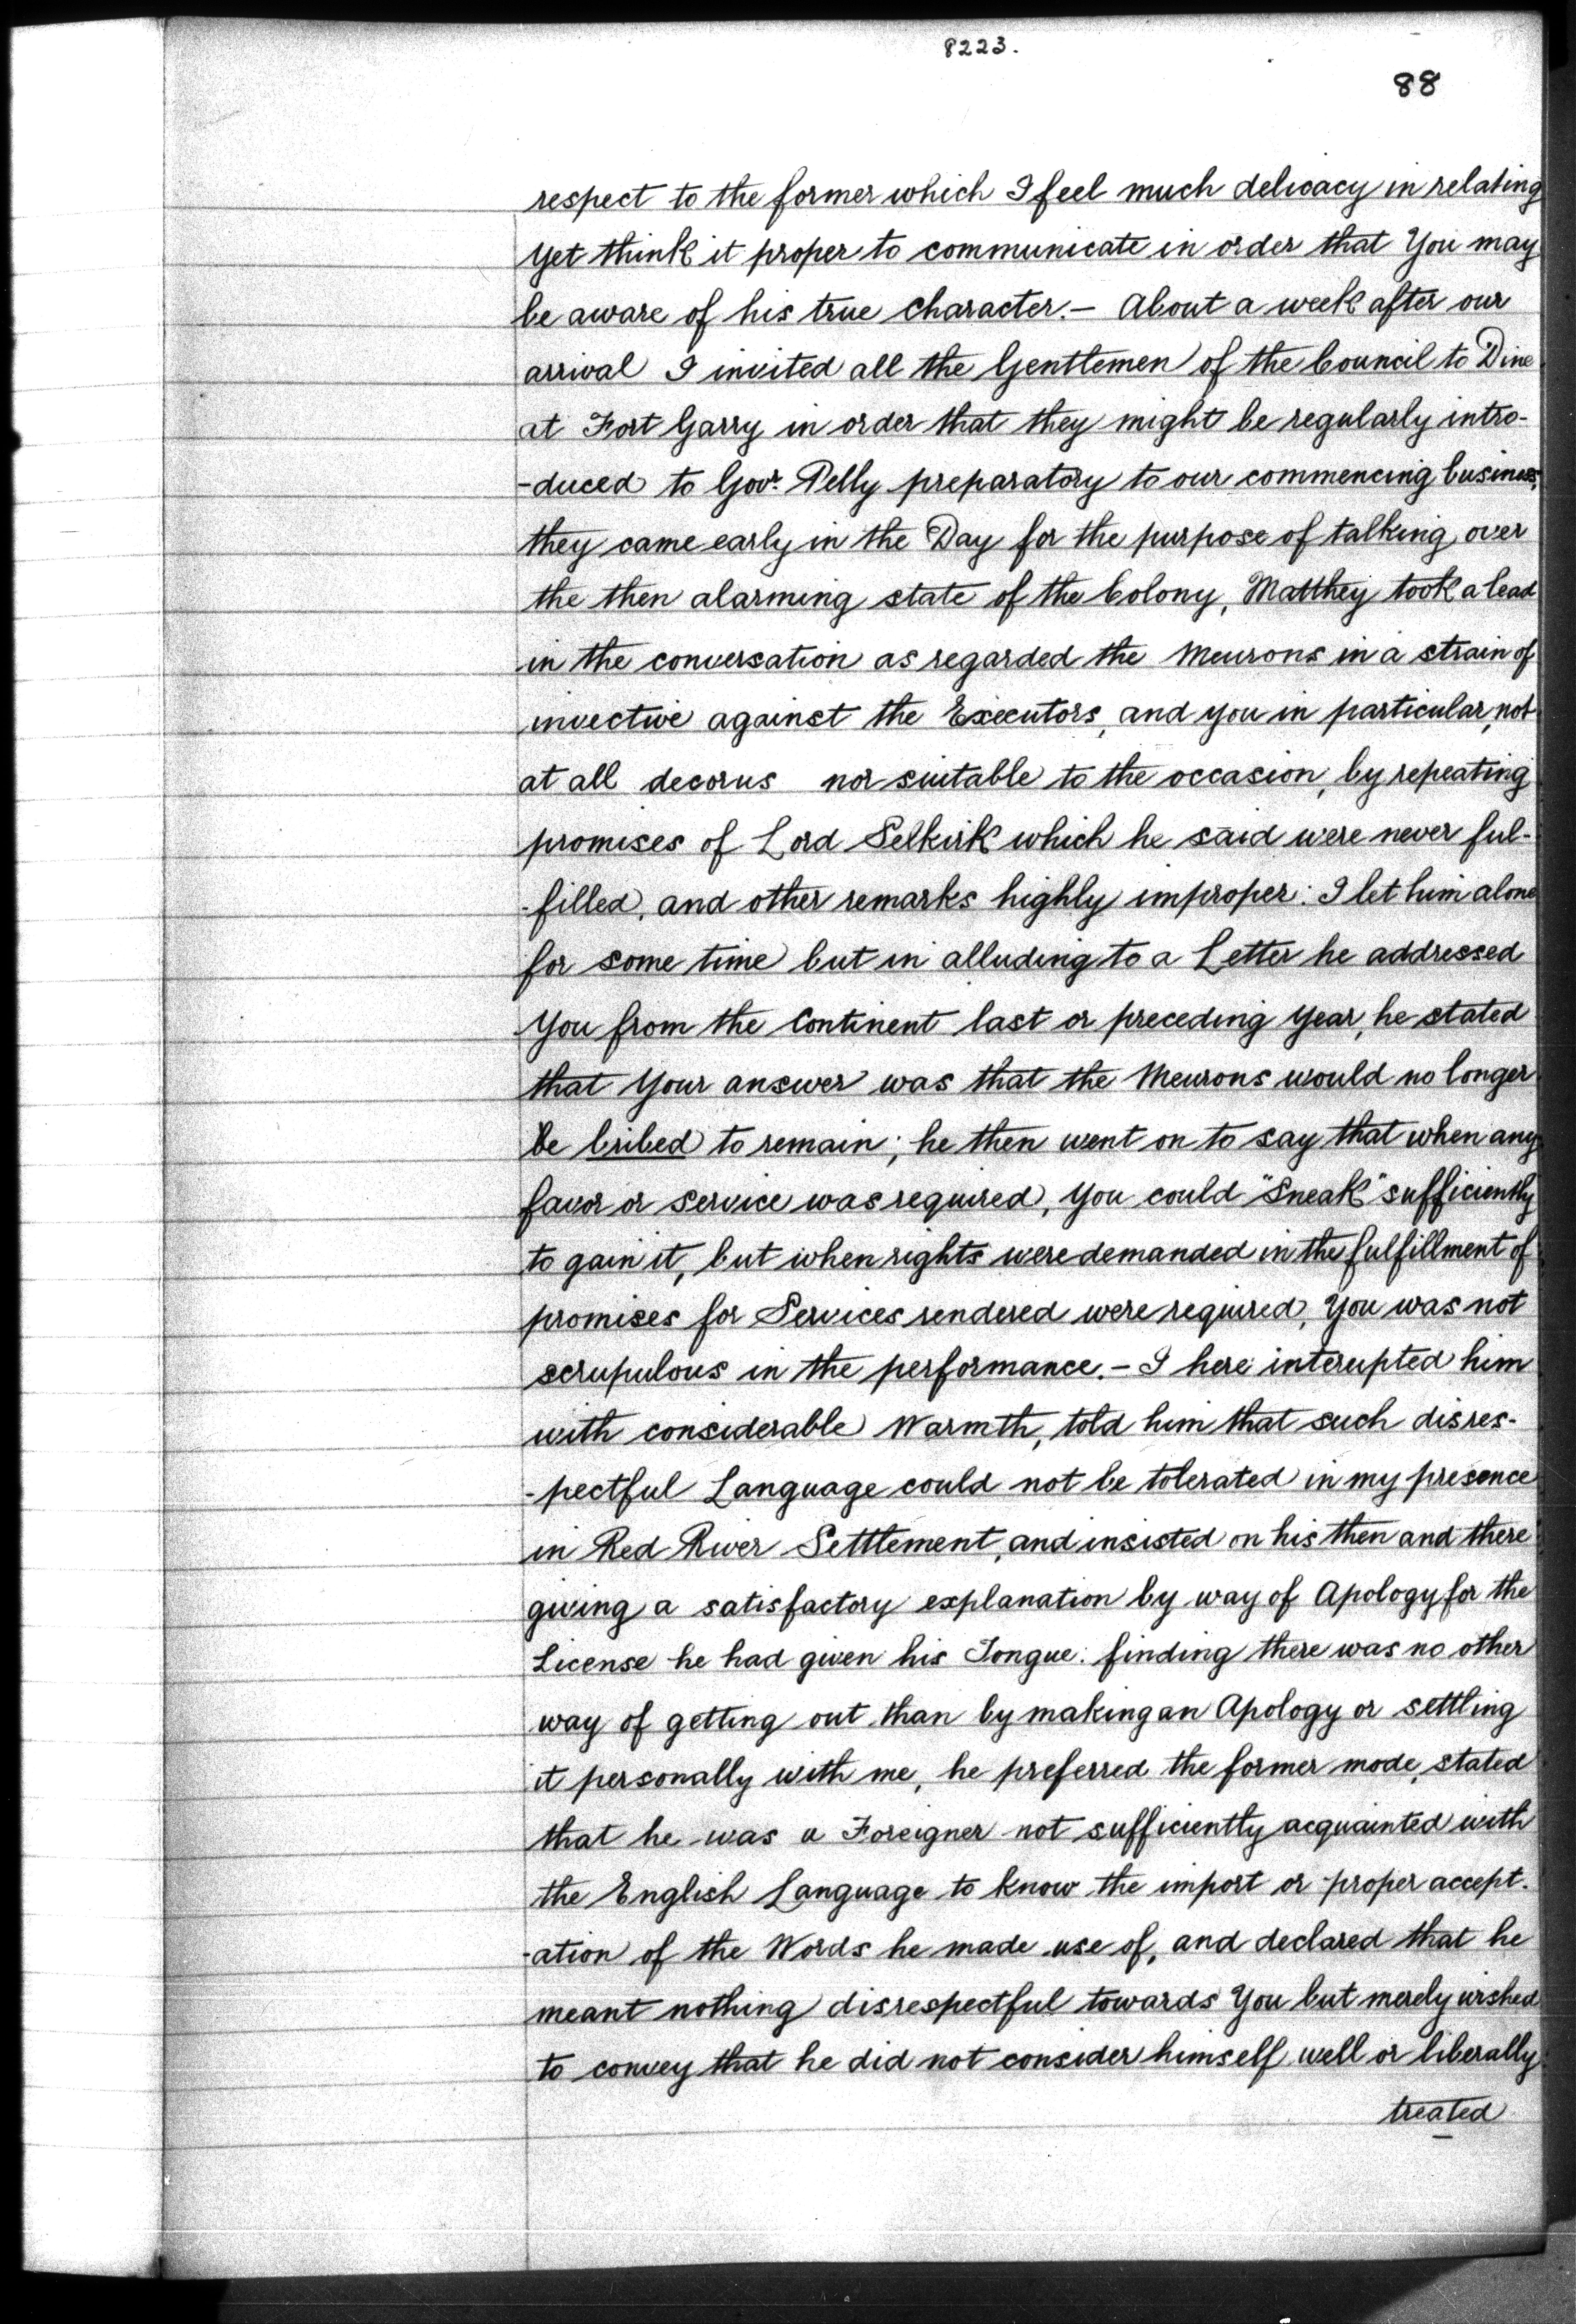 8223.
88
respect to the former which I feel much delicacy in relating
Yet think it proper to communicate in order that You may
be aware of his true Character. – About a week after our
arrival I invited all the Gentlemen of the Council to Dine
at Fort Garry in order that they might be regularly intro-
-duced to Govr. Pelly preparatory to our commencing business,
they came early in the Day for the purpose of talking over
the then alarming state of the Colony, Matthey took a lead
in the conversation as regarded the Meurons in a strain of
invective against the Executors, and you in particular, not
at all decorus nor suitable to the occasion, by repeating
promises of Lord Selkirk which he said were never ful-
-filled, and other remarks highly improper: I let him alone
for some time but in alluding to a Letter he addressed
You from the Continent last or preceding Year, he stated
that Your answer was that the Meurons would no longer
be bribed to remain; he then went on to say that when any
favor or service was required, You could "Sneak" sufficiently
to gain it, but when rights were demanded in the fulfillment of
promises for Services rendered were required, You was not
scrupulous in the performance. – I here interupted him
with considerable Warmth, told him that such disres-
-pectful Language could not be tolerated in my presence
in Red River Settlement, and insisted on his then and there
giving a satisfactory explanation by way of Apology for the
License he had given his Tongue: finding there was no other
way of getting out than by making an Apology or settling
it personally with me, he preferred the former mode, stated
that he was a Foreigner not sufficiently acquainted with
the English Language to know the import or proper accept-
-ation of the Words he made use of, and declared that he
meant nothing disrespectful towards You but merely wished
to convey that he did not consider himself well or liberally
treated